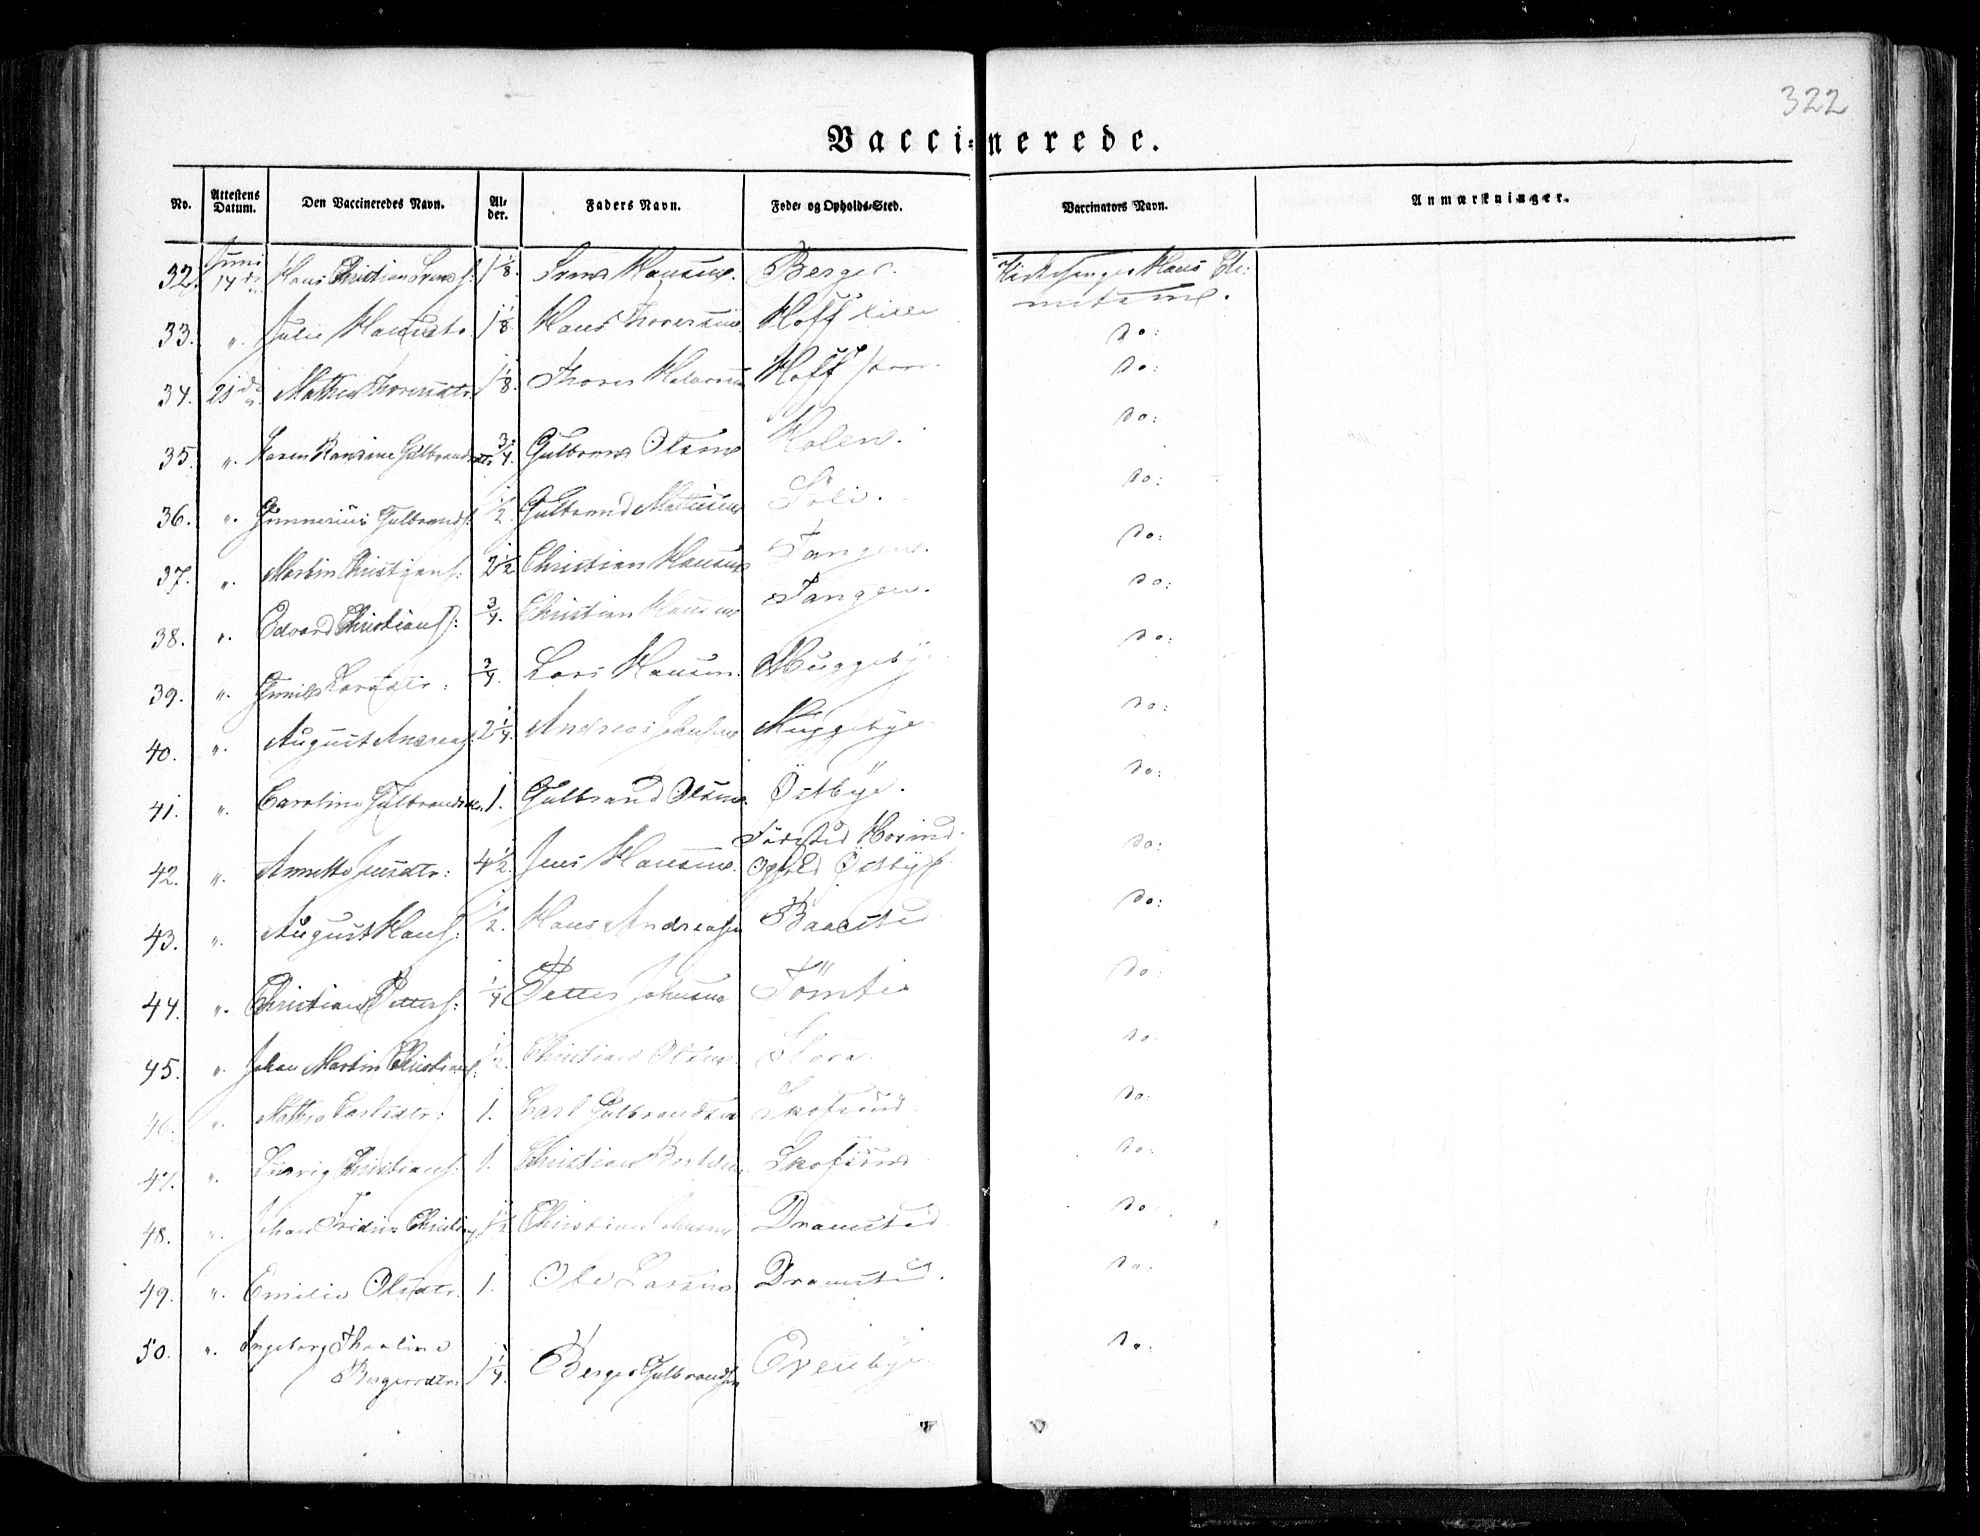 322
Vacci-nerede.
No. Attestens Datum. Den Vaccineredes Navn. Al-der. Faders Navn. Føde- og Opholds-Sted. Vaccinators Navn. Anmærkninger.
32. Juni 14de Hans Christian Svens. 1 1/8. Svend Hansen. Berger. Kirkesanger Hans
33. ". Julie Hansdtr. 1 1/8. Hans Thoresen Hoff lille do:
34. 21de Mathea Thoresdtr. 1 1/8. Thores Hoff store. do:
35. ". Karen Gulbrandsdtr. 3/4. Gulbrand Olsen Holen. do:
36. ". Gunnerius Gulbrands. 1/2. Gulbrand Matisen Søli. do:
37. ". Martin Christians: 2 1/2 Christian Hansen Tangen. do:
38. ". Edvard Christians: 3/4. Christian Hansen Tangen. do:
39. ". Larsdtr: 3/4. Lars Hansen. Muggeby do:
40. ". August Andreas. 2 1/4. Andreas Johnsen Muggebye do:
41. ". Caroline Gulbrandsdtr. 1. Gulbrand Olsen. Østbye. do:
42. ". Annette Jensdtr: 4 1/2. Jens Hansen. Fødested Horind Ophold Østbye. do:
43. ". August Hans: 1/2. Hans Andreasen Baarsted do:
44. ". Christian Petters: 1/4 Petter Johnsen Tømte do:
45. ". Johan Martin Christians: 1/2. Christian Olsen Slora. do.
46. ". Mathea Carlsdtr: 1. Carl Gulbrandsen Skofsrud. do.
47. ". Ludvig Christians: 1. Christian Skofsrud. do.
48. ". Johan Christians 1 1/2. Christian Dramsted. do.
49. ". Emilie Olsdtr. 1. Ole Larsen Dramsted. do.
50. ". Ingeborg Thorline
Bergersdtr. 1 1/4. Berger Gulbrandsen Evenbye. do.